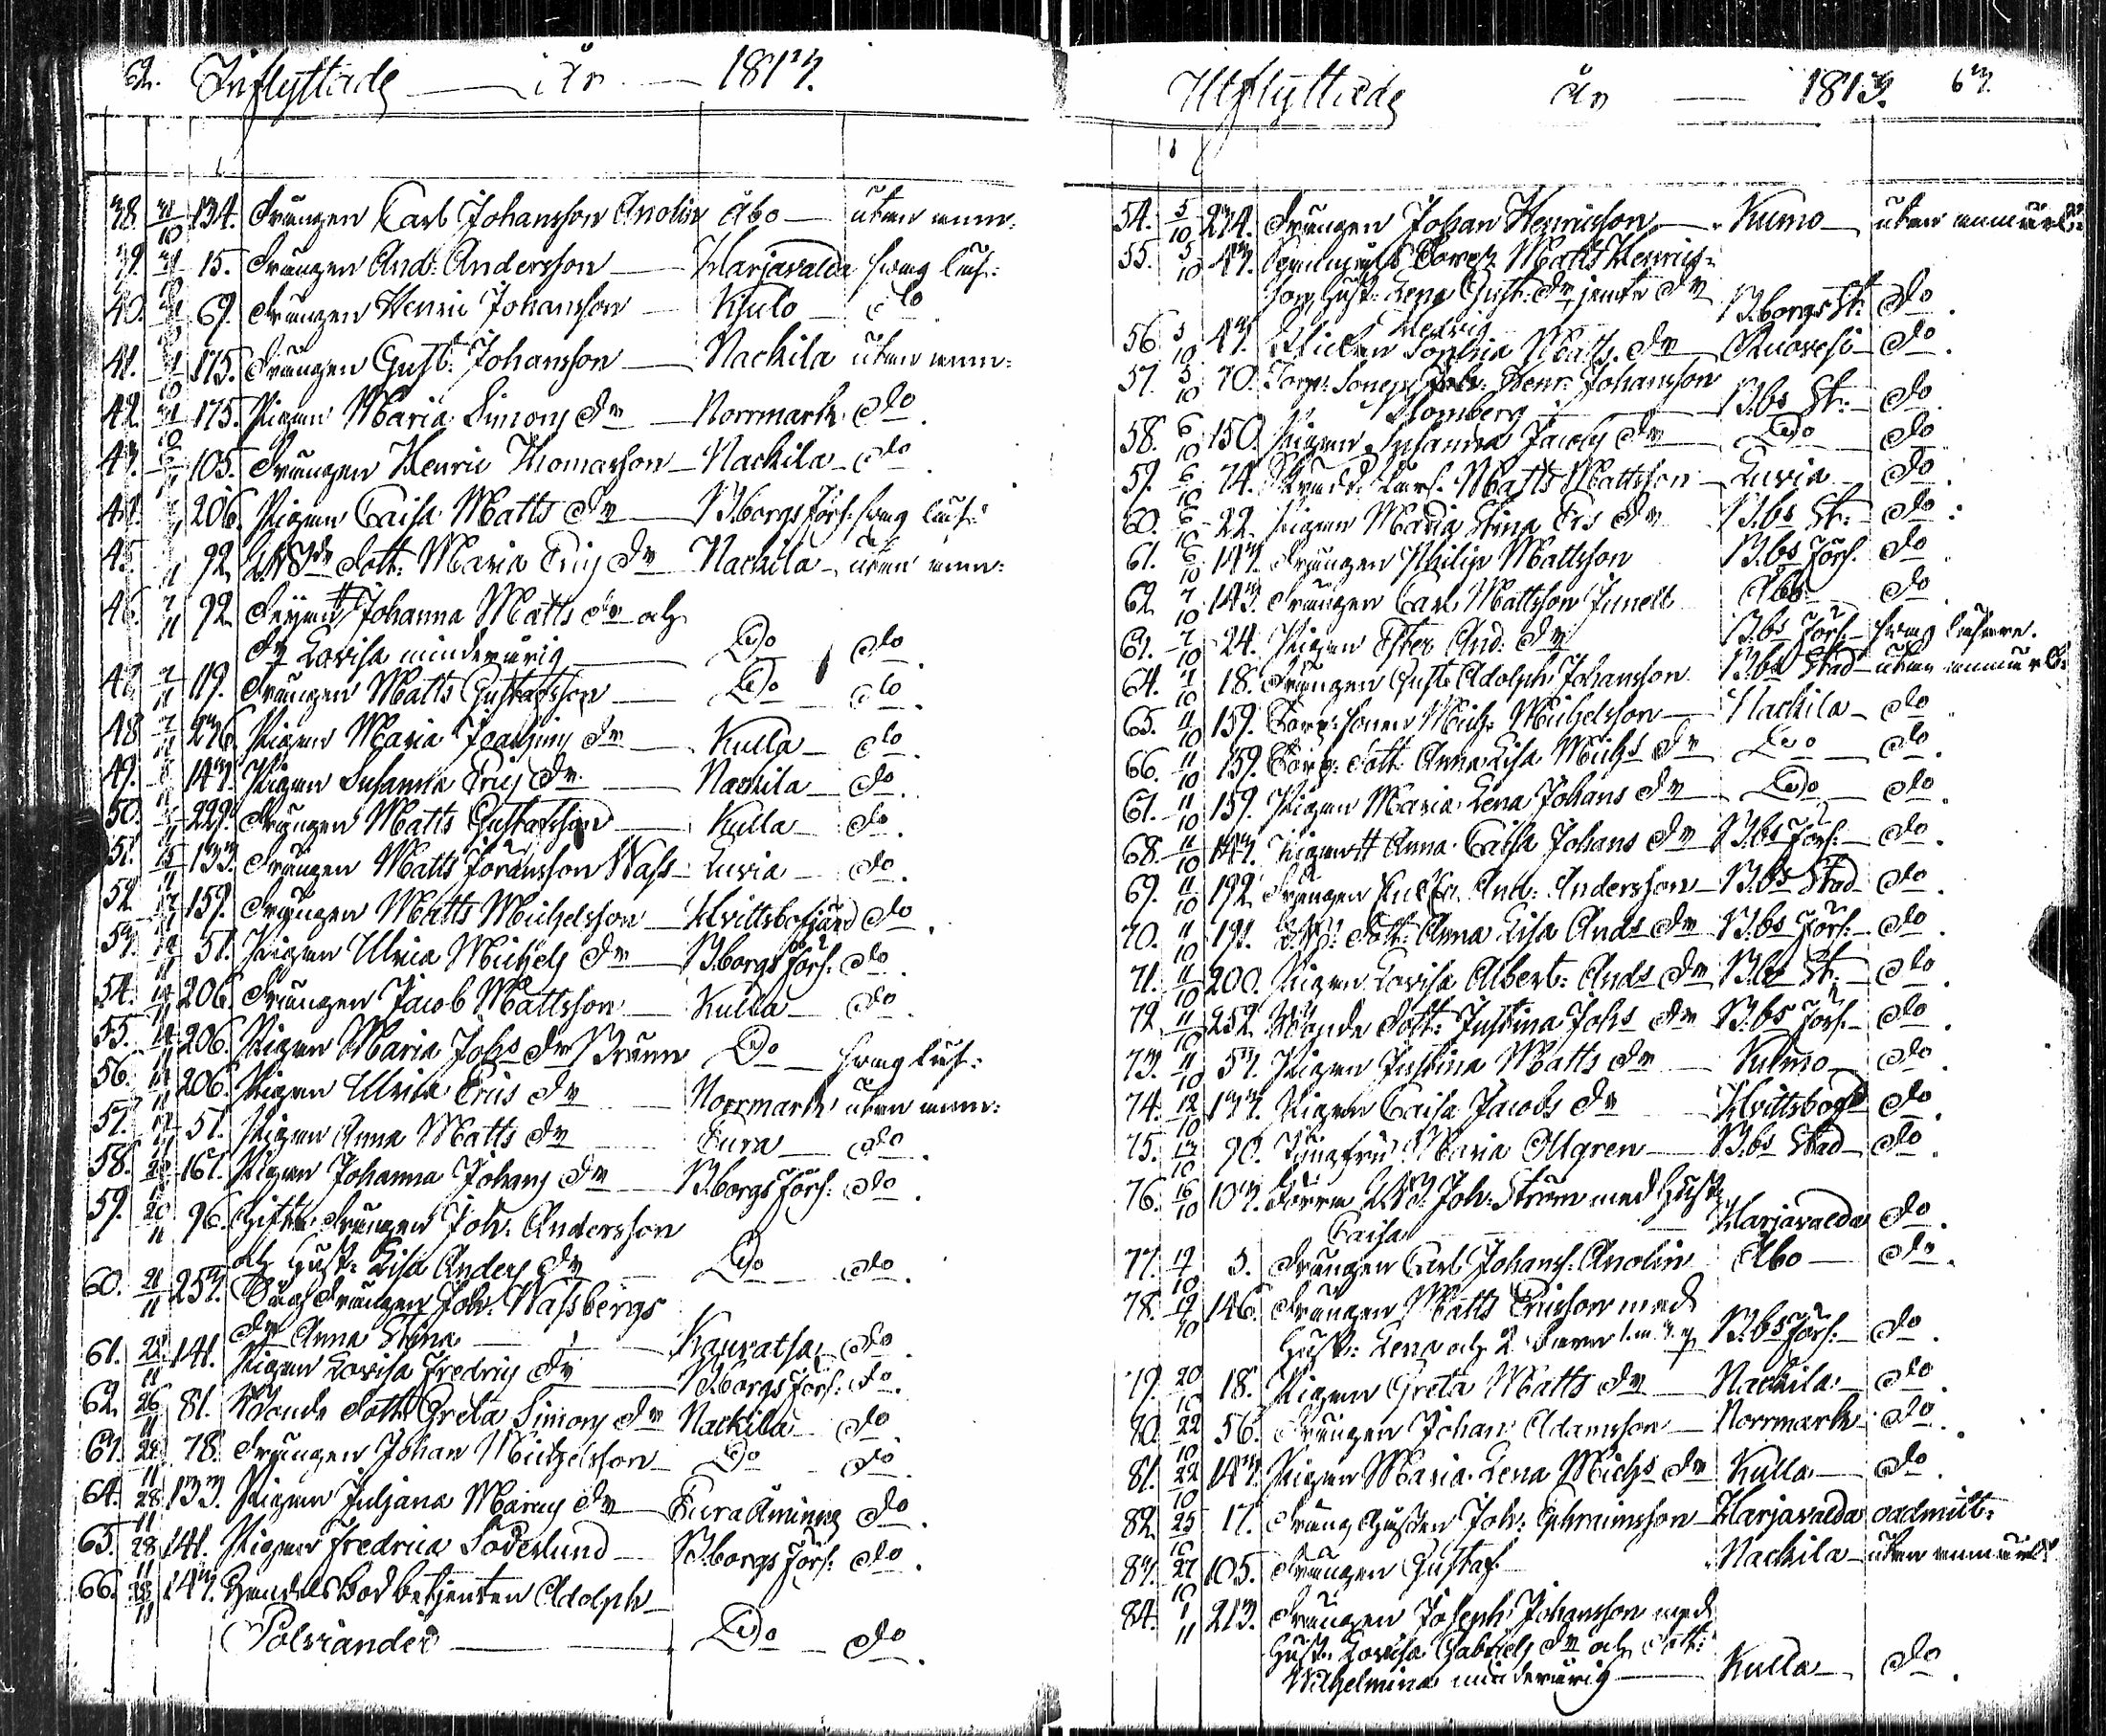 62. Inflyttade år 1813.
38. 31/10 134. Drängen Carl Johansson Anolin Åbo utan anm:
39. 31/10 15. Drängen And: Andersson Harjavalda svag läs:
40. 31/10 69. Drängen Henric Johansson Kiulo do
41. 31/10 175. Drängen Gust: Johansson Nackila utan anm:
42. 31/10 175. Pigan Maria Simons dr Norrmark do.
43. 105. Drängen Henric Thomasson Nackila do.
44. 206. Pigan Caisa Matts dr B.borgs förs: svag läs:
45. 92. dott: Maria Erics dr Nackila utan anm:
46. 7/11 92. Johanna Matts dr och
dr Lovisa minderårig Do do.
47. 7/11 119. Drängen Matts Gustafsson Do do.
48. 7/11 236. Pigan Maria Joachims dr Kulla do.
49. 143. Pigan Susanna Erics dr Nackila do.
50. 229. Drängen Matts Gustafsson Kulla do.
51. 15/11 133. Drängen Matts Jöransson Wass Luvia do.
52. 17/11 159. Drängen Matts Michelsson Hvittisbofjärd do.
53. 51. Pigan Ulrica Michels dr B.borgs förs: do.
54. 206. Drängen Jacob Mattsson Kulla do.
55. 206. Pigan Maria Johs dr Brunn Do svag läs:
56. 206. Pigan Ulrica Erics dr Norrmark utan anm:
57. 51. Pigan Anna Matts dr Eura do.
58. 161. Pigan Johanna Johans dr B.borgs förs: do.
59. 20/11 96. Gifte Drängen Joh: Andersson
och Hust: Lisa Anders dr Do do.
60. 21/11 253. Drängen Joh: Wassbergs
dr Anna Stina Kauvatsa do.
61. 141. Pigan Lovisa Fredrics dr B.borgs förs: do.
62. 26/11 81. Bonde dott: Greta Simons dr Nackila do.
63. 28/11 78. Drängen Johan Michelsson Do do.
64. 28/11 133. Pigan Juliana Marcus dr Eura Åminne do.
65. 28/11 141. Pigan Fredrica Söderlund B.borgs förs: do.
66. 28/11 143. Handels Bod betjenten Adolph
Polviander Do do.
Utflyttade år 1813. 63.
54. 5/10 234. Drängen Johan Henricsson Kumo utan anmärk:
55. 5/10 43. Matts Henrics-
son, Hust: Lena Gust: dr jemte dr
Hedvig B.borgs St: do.
56. 5/10 43. Pickan Sophia Matts dr Ruovesi do.
57. 5/10 70. Torp: Sonen Joh: Henr: Johansson
Blomberg B.bs St: do.
58. 6/10 150. Pigan Susanna Jacobs dr Do do.
59. 6/10 74. Matts Mattsson Luvia do.
60. 6/10 22. Pigan Maria Stina Ers dr B.bs St: do.
61. 6/10 143. Drängen Philip Mattsson B.bs förs. do.
62. 7/10 143. Drängen Carl Mattsson Junell Åbo do
63. 7/10 24. Pigan Ester And: dr B.bs förs. svag läsare.
64. 18. Drängen Gust: Adolph Johansson B.bs Stad utan anmärk:
65. 11/10 159. Torp: sonen Mich: Michelsson Nackila do.
66. 11/10 159. Torp: dott: Anna Lisa Michs dr Do do.
67. 11/10 159. Pigan Maria Lena Johans dr Do do.
68. 11/10 143. Pigan Anna Caisa Johans dr B.bs förs: do.
69. 11/10 192. Drängen And: Andersson B.bs Stad do.
70. 11/10 191. dott: Anna Lisa Ands dr B.bs förs: do.
71. 11/10 200. Pigan Lovisa Albert: Ands dr B.bs St: do.
72. 11/10 252. Bonde dott: Justina Johs dr B.bs förs. do.
73. 11/10 53. Pigan Justina Matts dr Kulmo do.
74. 12/10 133. Pigan Caisa Jacobs dr Hvittisbofd do.
75. 13/10 90. Jungfru Maria Ollgren B.bs Stad do.
76. 16/10 103. Joh: Ström med Hust:
Caisa Harjavalda do.
77. 5. Drängen Carl Johans: Anolin Åbo do.
78. 19/10 146. Drängen Matts Ericsson med
Hust: Lena och 2 barn B.bs förs. do.
79. 20/10 18. Pigan Greta Matts dr Nackila do.
80. 22/10 56. Drängen Johan Adamsson Norrmark do.
81. 22/10 143. Pigan Maria Lena Michs dr Kulla do.
82. 25/10 17. Joh: Ephraimsson Harjavalda oadmitt:
83. 27/10 105. Drängen Gustaf Nackila utan anmärk:
84. 1/11 213. Drängen Joseph Johansson med
Hust: Lovisa Gabriels dr och dott:
Wilhelmina minderårig Kulla do.